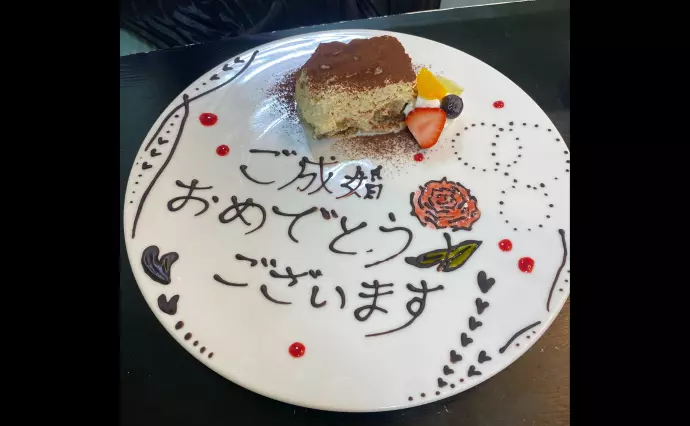 ご成婚
おめでとう
ございます